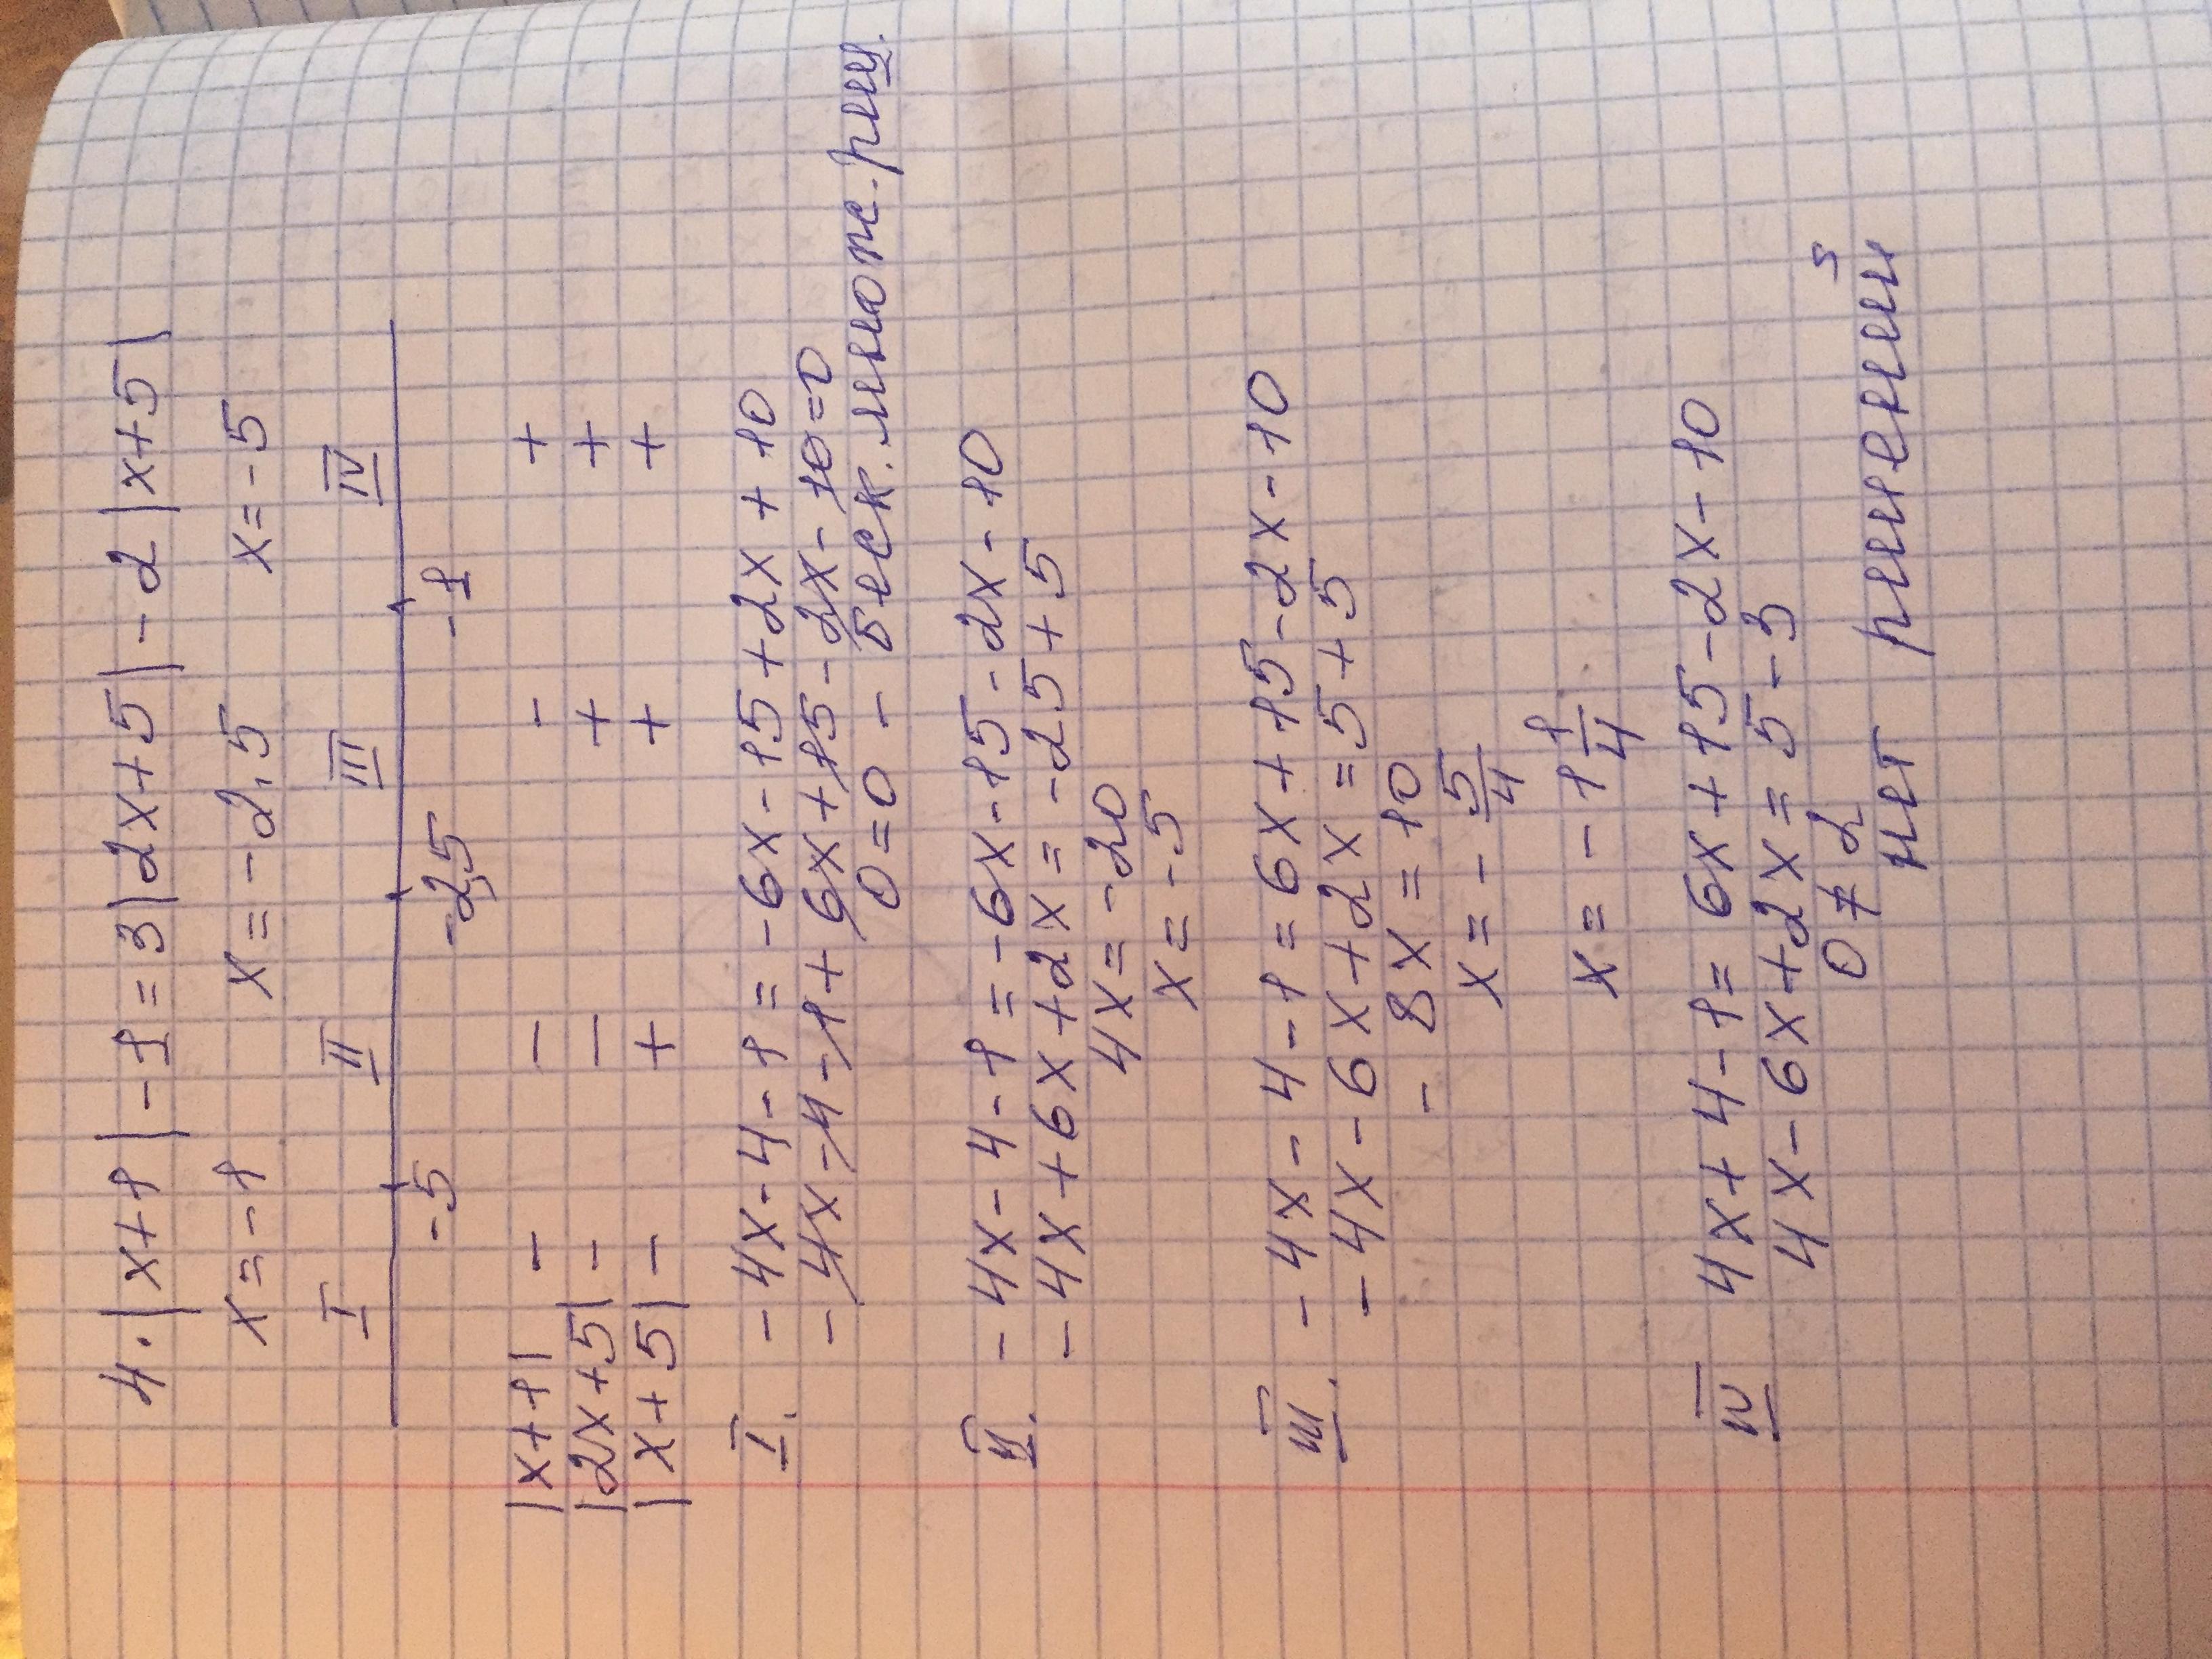 4·|x+1|-1=3|2x+5|-2|x+5|
x=-1 x=-2,5 x=-5
I II III IV
-5 -2,5 -1
|x+1| - - - +
|2x+5| - - + +
|x+5| - + + +
I. -4x-4-1=-6x-15+2x+10
-4x-4-1+6x+15-2x-10=0
0=0 - беск. множ. реш.
II. -4x-4-1=-6x-15-2x-10
-4x+6x+2x=-25+5
4x=-20
x=-5
III. -4x-4-1=6x+15-2x-10
-4x-6x+2x=5+5
-8x=10
x=-5/4
x=-1 1/4
IV 4x+4-1=6x+15-2x-10
4x-6x+2x=5-3
0≠2
нет решений